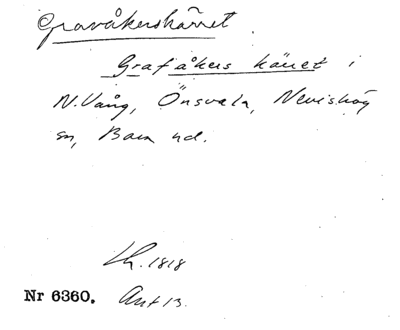 Gravåkerskärret
Grafåkers käret i
N. Vång, Önsvala, Nevishög
sn, Bara hd.
Lh. 1818
Nr 6360. Ant 13.